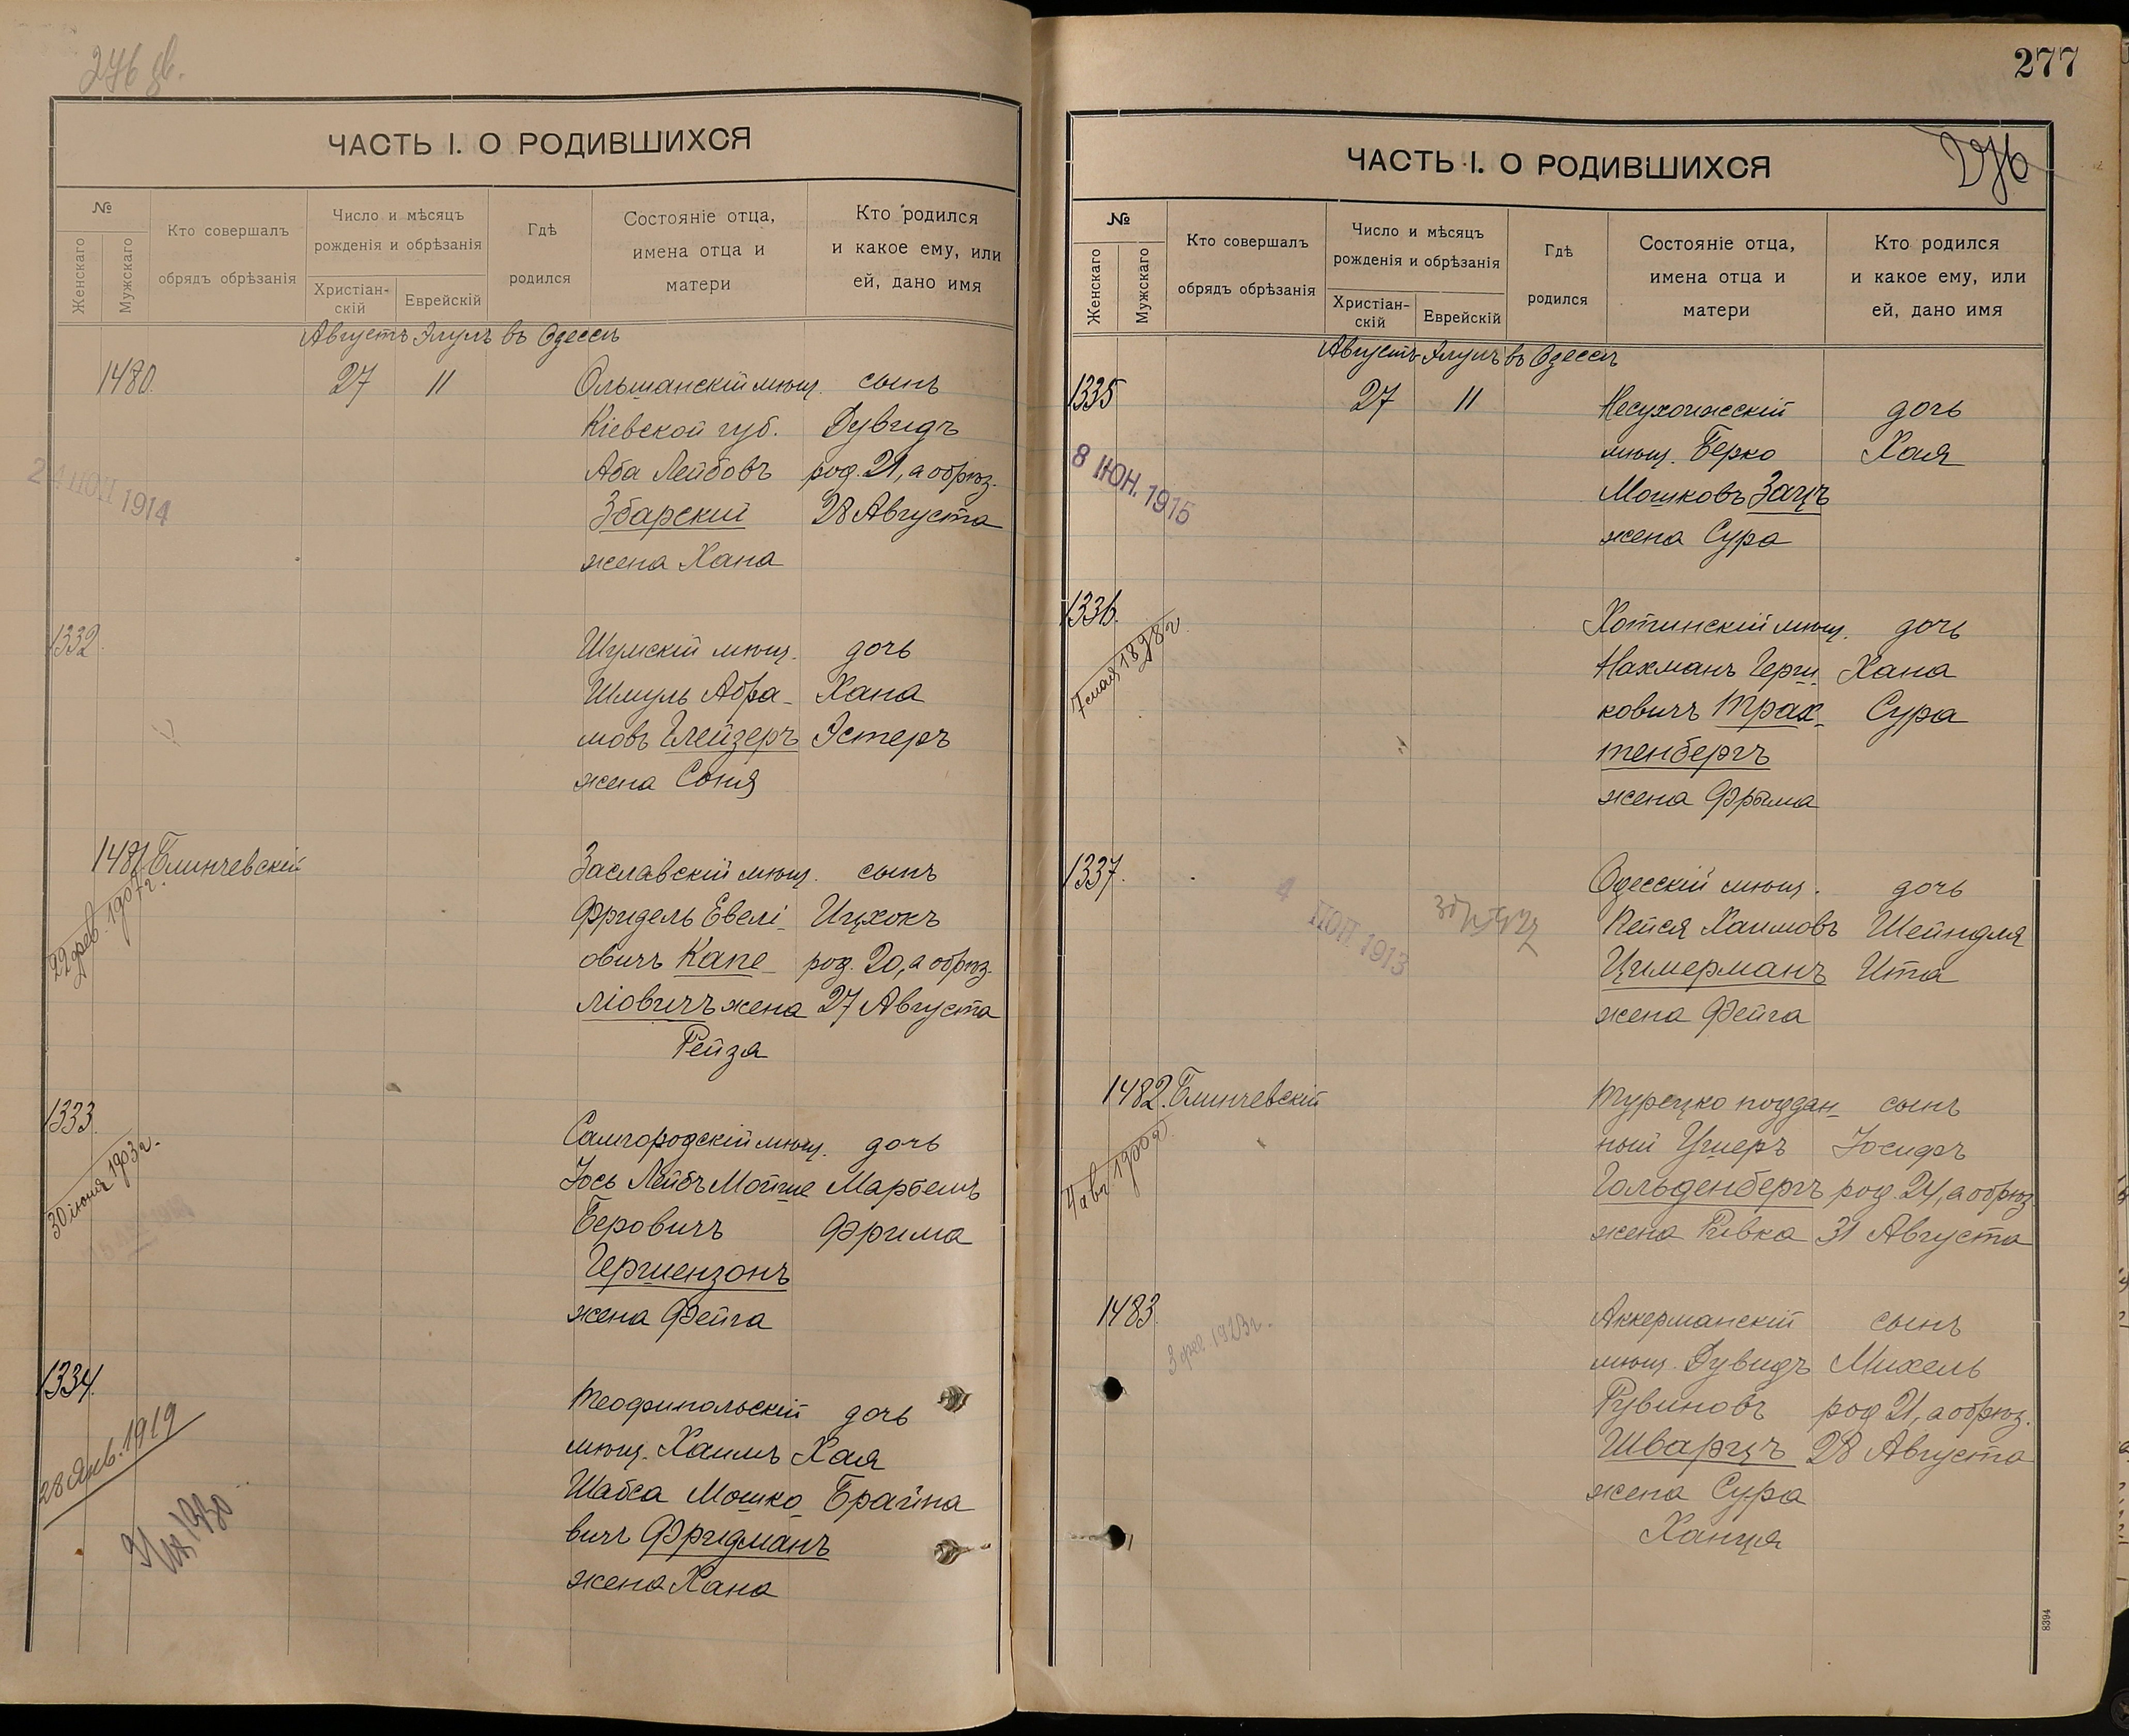 276 об.
ЧАСТЬ I. О РОДИВШИХСЯ
№
Женскаго
Мужскаго
Кто совершалъ
обрядъ обрѣзанія
Число и мѣсяцъ
рожденія и обрѣзанія
Христіан-
скій
Еврейскій
Гдѣ
родился
Состояніе отца,
имена отца и
матери
Кто родился
и какое ему, или
ей, дано имя
Августъ Элулъ въ Одессѣ
1480. 27 11 Ольшанскій мѣщ. сынъ
Кіевской губ. Дувидъ
Аба Лейбовъ род. 21, а обрѣз.
Збарскій 28 Августа
жена Хана
1914
1332. Шумскій мѣщ. дочь
Шмуль Абра- Хана
мовъ Глейзеръ Эстеръ
жена Соня
1481 Блинчевскій Заславскій мѣщ. сынъ
Фридель Евелі- Ицхокъ
овичъ Капе- род. 20, а обрѣз.
ліовичъ жена 27 Августа
Рейза
22 фев. 1907 г.
1333. Самгородскій мѣщ. дочь
Іось Лейбъ Мойше Марбемъ
Беровичъ Фрима
Гершензонъ
жена Фейга
30 іюня 1903 г.
1334. Теофипольскій дочь
мѣщ. Хаимъ Хая
Шабса Мошко Брайна
вичъ Фридманъ
жена Хана
28 Янв. 1919
277
276
ЧАСТЬ I. О РОДИВШИХСЯ
№
Женскаго
Мужскаго
Кто совершалъ
обрядъ обрѣзанія
Число и мѣсяцъ
рожденія и обрѣзанія
Христіан-
скій
Еврейскій
Гдѣ
родился
Состояніе отца,
имена отца и
матери
Кто родился
и какое ему, или
ей, дано имя
Августъ Элулъ въ Одессѣ
1335 27 11 Несухоижскій дочь
мѣщ. Берко Хая
Мошковъ Зацъ
жена Сура
8 ІЮН. 1915
1336. Хотинскій мѣщ. дочь
Нахманъ Герш- Хана
ковичъ Трах- Сура
тенбергъ
жена Фрыма
7 мая 1898 г.
1337. Одесскій мѣщ. дочь
Пейся Хаимовъ Шейндля
Цимерманъ Ита
жена Фейга
4 1913
1482. Блинчевскій Турецко поддан- сынъ
ный Ушеръ Іосифъ
Гольденбергъ род. 24, а обрѣз.
жена Ривка 31 Августа
4 авг 1900 г.
1483. Аккерманскій сынъ
мѣщ. Дувидъ Михель
Рувиновъ род 21, а обрѣз.
Шварцъ 28 Августа
жена Сура
Ханця
3 фев. 1923 г.
8394